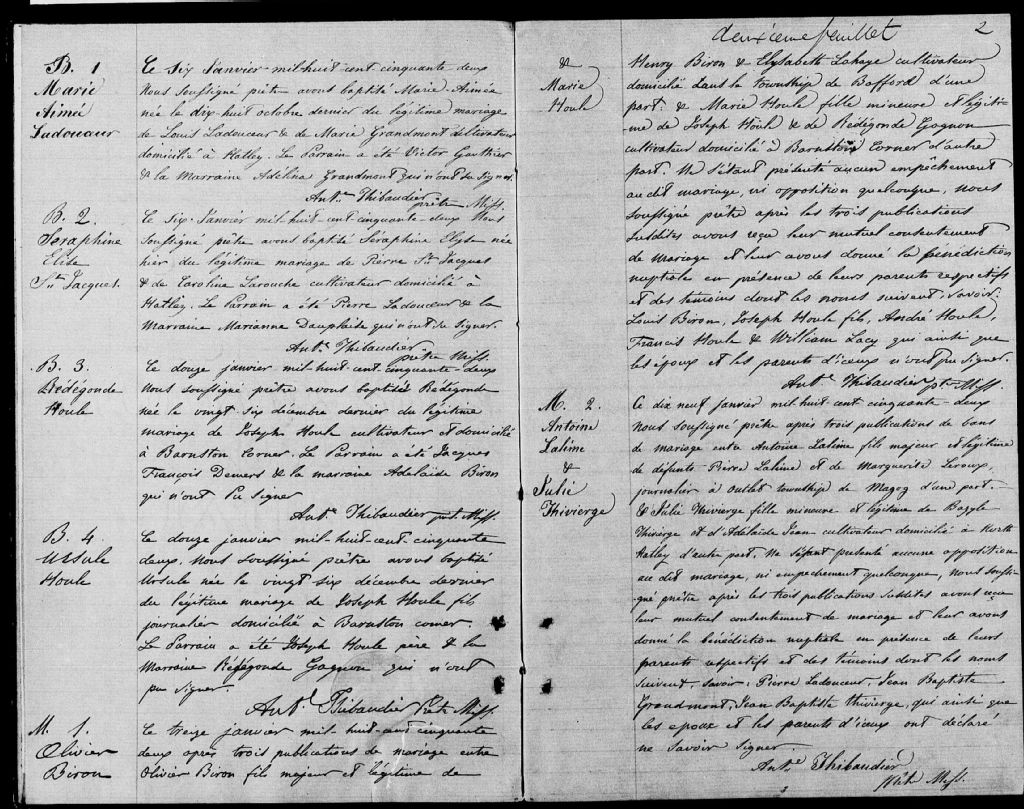 B. 1
Marie
Aimée
Ladouceur
Le six Janvier mil-huit-cent cinquante deux
Nous Soussigné prêtre avons baptisé Marie-Aimée
née le dix-huit octobre dernier du légitime mariage
de Louis Ladouceur & de Marie Grandmont cultivateur
domicilié à Hatley. Le Parrain a été Victor Gauthier
& la Marraine Adélina Grandmont qui n'ont su signer.
Ant.e Thibaudier
prêtre Miss.
B. 2.
Séraphine
Elise
St. Jacques.
Le Six-Janvier mil-huit-cent cinquante-deux Nous
Soussigné prêtre avons baptisé Séraphine Elyse née
hier du légitime mariage de Pierre St. Jacques
& de Caroline Larouche cultivateur domicilié à
Hatley. Le Parrain a été Pierre Ladouceur & la
Marraine Marianne qui n'ont su signer.
Ant.e Thibaudier.
prêtre Miss.
B. 3.
Rédégonde
Houle
Le douze janvier mil-huit-cent-cinquante-deux
Nous Soussigné prêtre avons baptisé Rédégonde
née le vingt six décembre dernier du légitime
mariage de Joseph Houle cultivateur et domicilié
à Barnston Corner. Le Parrain a été Jacques
François Demers & la marraine Adelaïde Biron
qui n'ont su signer
Ant.e Thibaudier pret. Miss.
B. 4
Ursule
Houle
Le douze janvier mil-huit-cent-cinquante
deux. Nous soussigné prêtre avons baptisé
Ursule née le vingt six décembre dernier
du légitime mariage de Joseph Houle fils
journalier domicilié à Barnston corner.
Le Parrain a été Joseph Houle père & la
Marraine Rédégonde Gagnon qui n'ont
pu signer.
Ant. Thibaudier Prêt. Miss.
M. 1.
Olivier
Biron
Le treize janvier mil-huit-cent cinquante
deux après trois publications de mariage entre
Olivier Biron fils majeur et légitime de
deuxième feuillet
2
&
Marie
Houle
Henry Biron & Elysabeth Lahaye cultivateur
domicilié dans le township de Bafford d'une
part. & Marie Houle fille mineure et légiti-
me de Joseph Houle & de Rédégonde Gagnon
cultivateur domicilié à Barnston Corner d'autre
part. Ne s'étant présenté aucun empêchement
au dit mariage, ni opposition quelconque, nous
soussigné prêtre après les trois publications
susdites avons reçu leur mutuel consentement
de mariage et leur avons donné la bénédiction
nuptiale en présence de leurs parents respectifs
et des témoins dont les noms suivent, savoir:
Louis Biron, Joseph Houle fils, André Houle,
Francis Houle & William Lacy qui ainsi que
les époux et les parents d'iceux n'ont pu signer.
Ant.e Thibaudier ptr. Miss.
M. 2.
Antoine
Lahime
&
Julie
Thivierge
Ce dix neuf janvier mil-huit-cent cinquante-deux
Nous Soussigné prêtre après trois publications de bans
de mariage entre Antoine Lahime fils majeur et légitime
de défunts Pierre Lahime et de Marguerite Leroux,
journalier à Outlet township de Magog d'une part.-
& Julie Thivierge fille mineure et légitime de Bazyle
Thivierge et d'Adélaïde Jean cultivateur domicilié à North
Hatley d'autre part. Ne s'étant présenté aucune opposition
au dit mariage, ni empechement quelconque, Nous soussi-
gné prêtre après les trois publications susdites avons reçu
leur mutuel consentement de mariage et leur avons
donné la bénédiction nuptiale en présence de leurs
parents respectifs et des témoins dont les noms
suivent, savoir: Pierre Ladouceur, Jean Baptiste
Grandmont, Jean Baptiste Thivierge, qui ainsi que
les epoux et les parents d'iceux ont déclaré
ne savoir signer.
Ant.e Thibaudier
Prêtr. Miss.